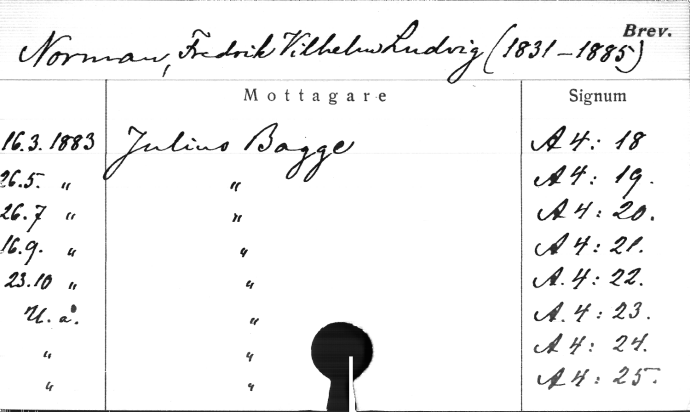 Brev.
Norman, Fredrik Vilhelm Ludvig (1831–1885)
Mottagare Signum
16.3. 1883 Julius Bagge A 4: 18
26.5. " " A 4: 19.
26.7 " " A 4: 20.
16.9. " " A 4: 21.
23.10 " " A. 4: 22.
U. å. " A. 4: 23.
" " A 4: 24.
" " A 4: 25.